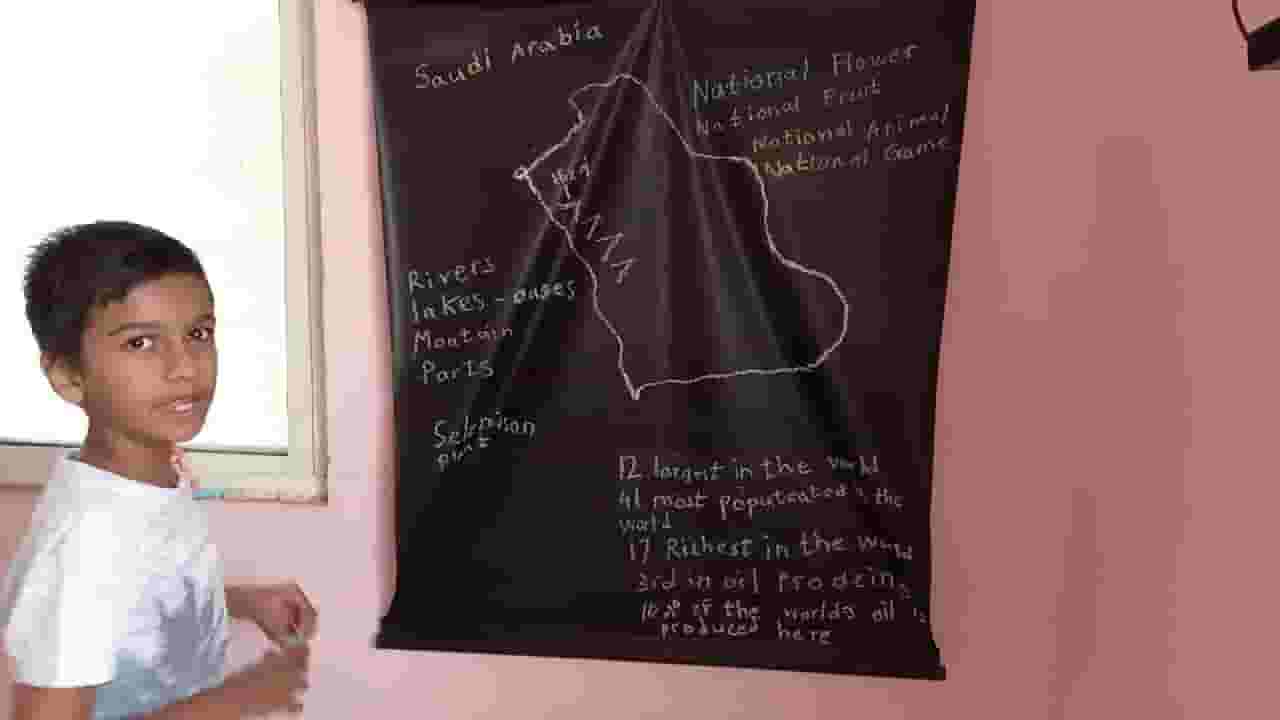 Saudi Arabia
National Flower
National Fruit
National Animal
National Game
Rivers
lakes - oases
Mountain
Parts
12 largest in the world
41 most populated the
world
17 Richest in the World
3rd in oil
10% of the worlds oil is
produced here